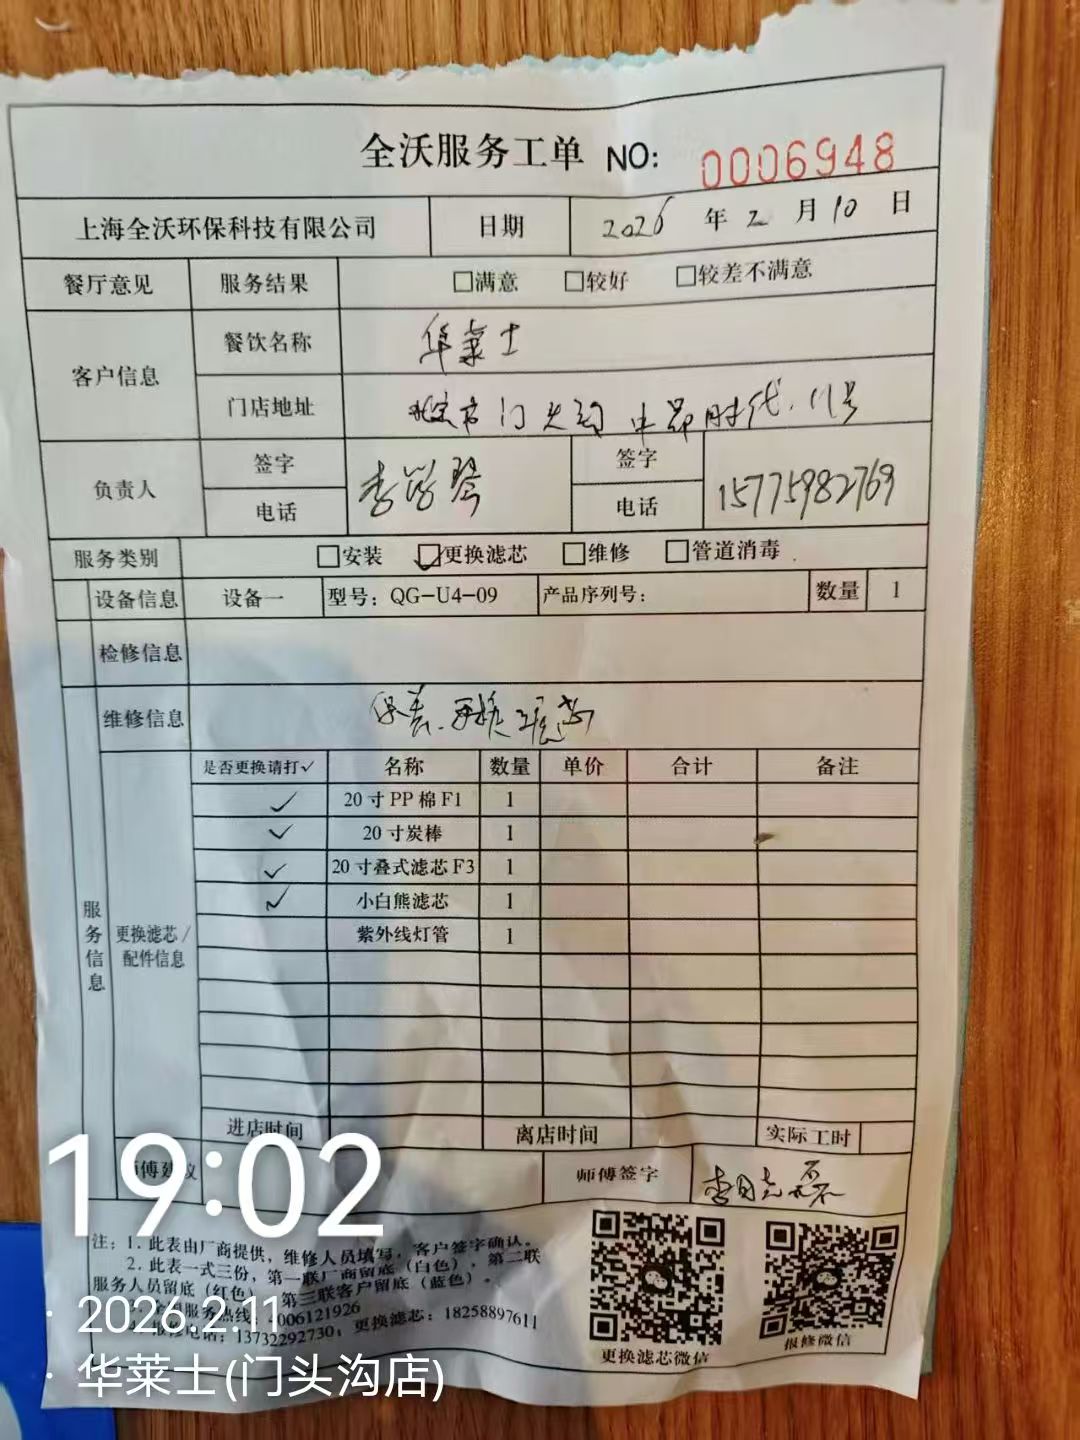 全沃服务工单 NO: 0006948
上海全沃环保科技有限公司 日期 2026 年 2 月 10 日
餐厅意见 服务结果 □满意 □较好 □较差不满意
客户信息 餐饮名称 华莱士
门店地址 北京市门头沟中昂时代.11号
负责人 签字 电话 李 琴 签字 电话 15775982769
服务类别 □安装 ☑更换滤芯 □维修 □管道消毒
设备信息 设备一 型号：QG-U4-09 产品序列号： 数量 1
检修信息
维修信息 保养.更换滤芯
服务信息
更换滤芯/配件信息
是否更换请打✓ 名称 数量 单价 合计 备注
✓ 20寸PP棉F1 1
✓ 20寸炭棒 1
✓ 20寸叠式滤芯F3 1
✓ 小白熊滤芯 1
紫外线灯管 1
进店时间 离店时间 实际工时
师傅建议 师傅签字 李
注：1．此表由厂商提供，维修人员填写，客户签字确认。
2．此表一式三份，第一联厂商留底（白色），第二联
服务人员留底（红色），第三联客户留底（蓝色）。
服务热线：4006121926
电话：13732292730；更换滤芯：18258897611
更换滤芯微信 报修微信
19:02
2026.2.11
华莱士(门头沟店)